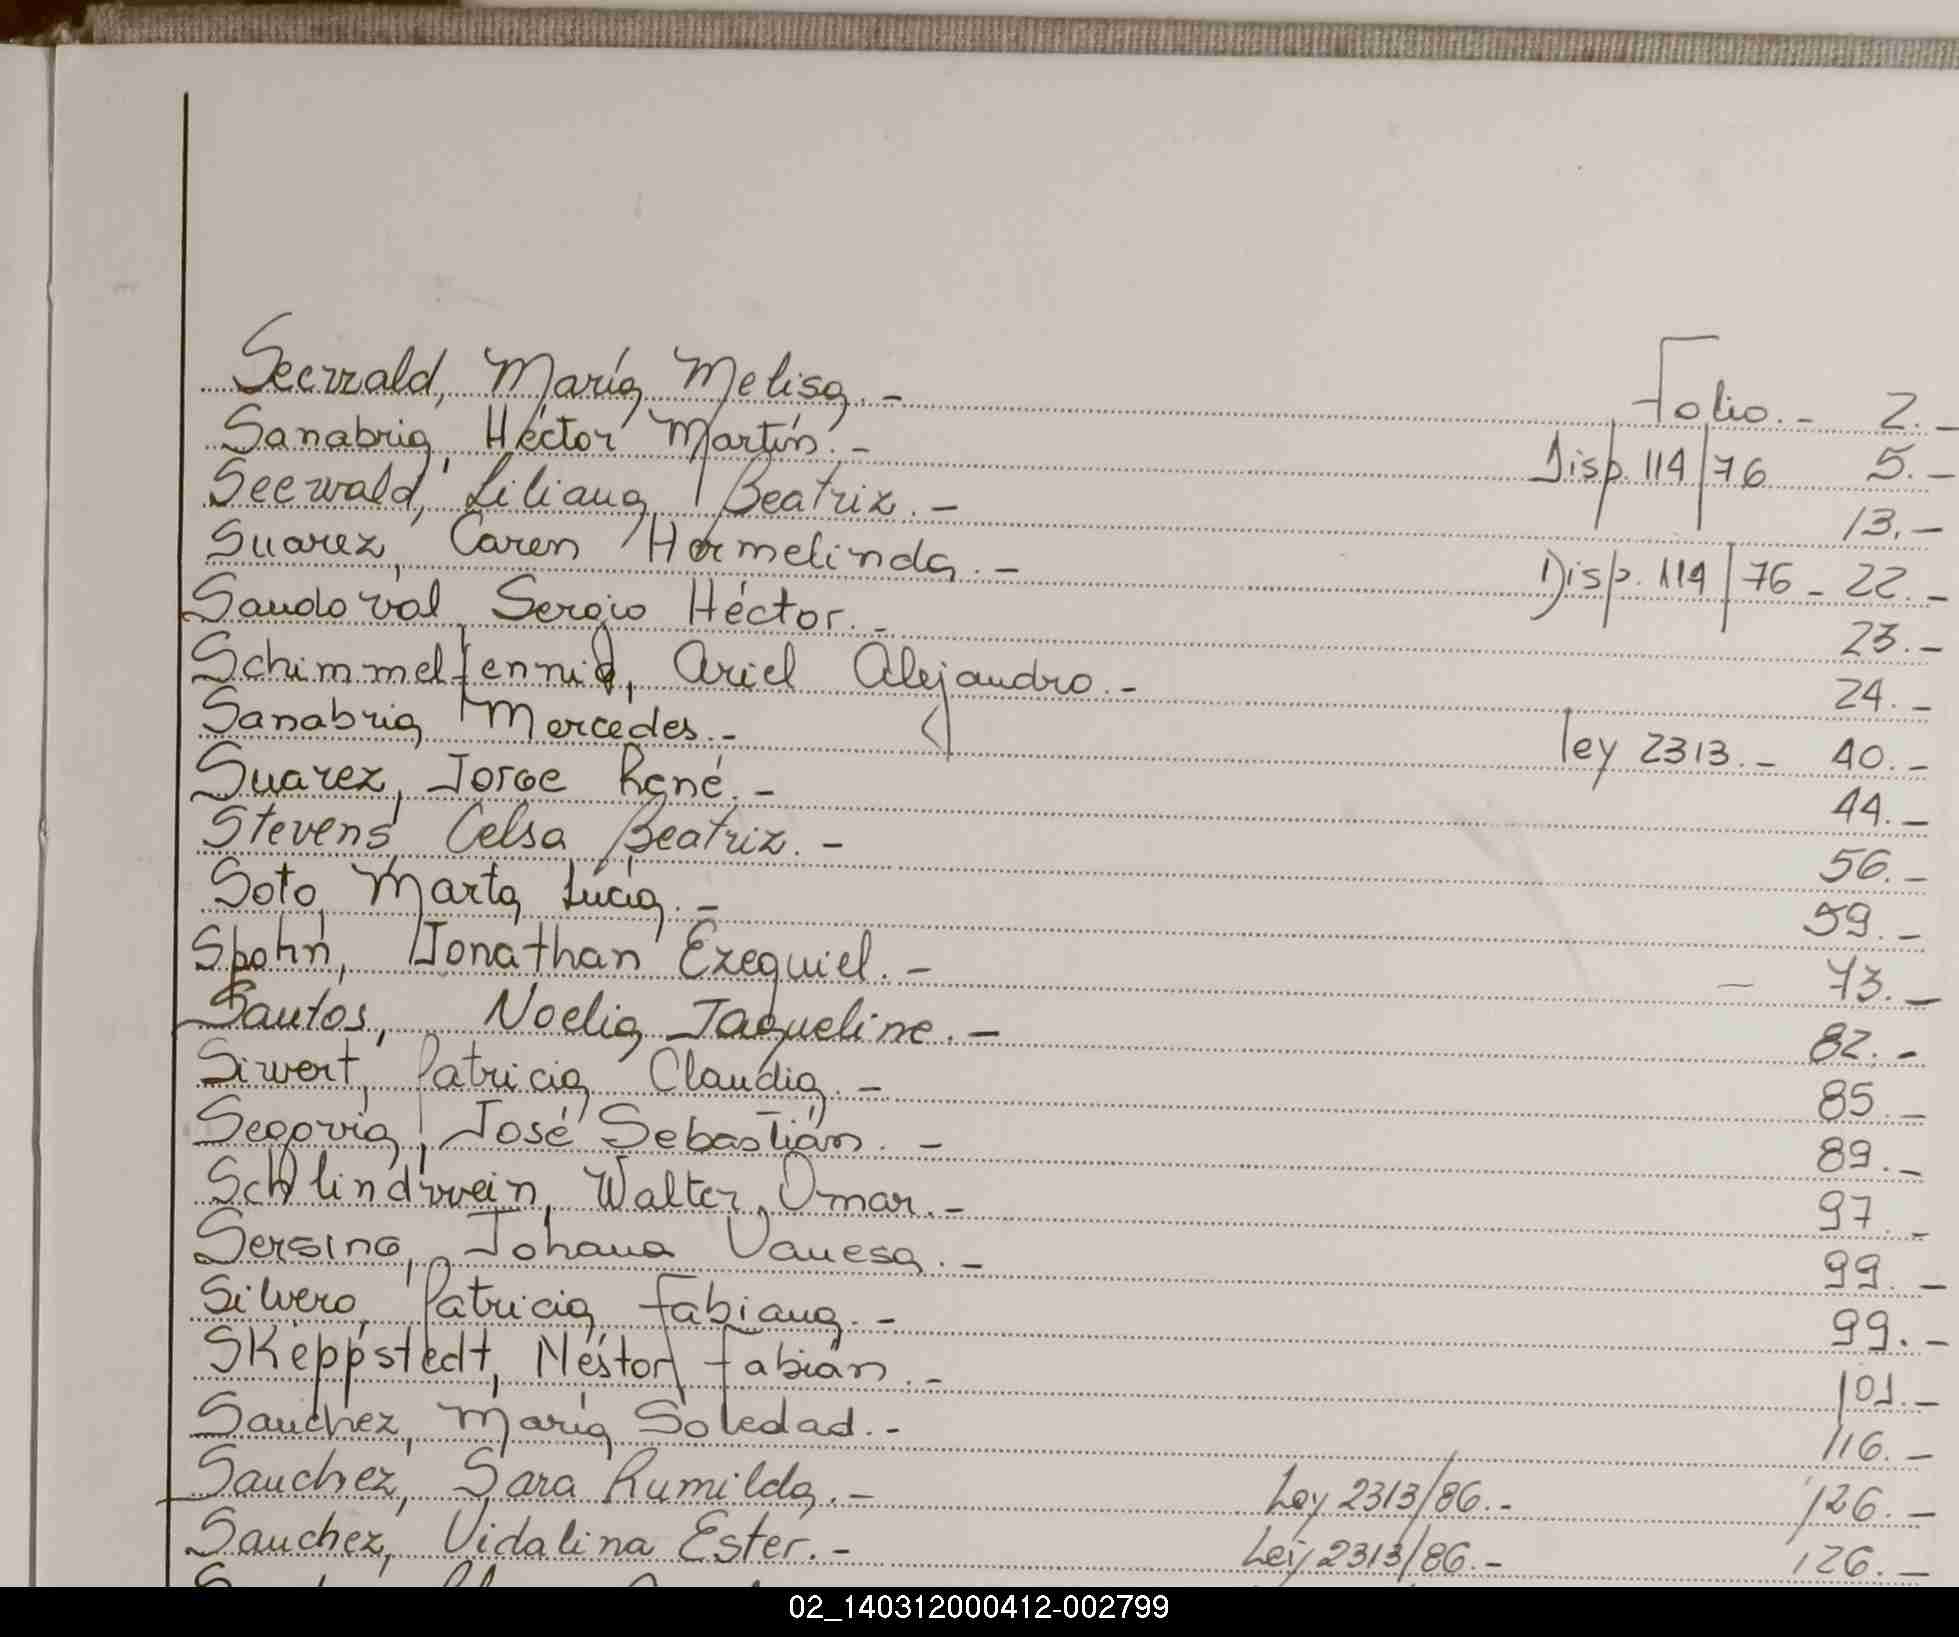 Seewald, María Melisa.- Folio.- 2.-
Sanabria, Héctor Martín.- Disp. 114/76 5.-
Seewald, Liliana Beatriz.- 13.-
Suarez, Caren Hermelinda.- Disp. 114/76 - 22.-
Sandoval Sergio Héctor.- 23.-
Schimmelfennig, Ariel Alejandro.- 24.-
Sanabria, Mercedes.- ley 2313.- 40.-
Suarez, Jorge René.- 44.-
Stevens, Celsa Beatriz.- 56.-
Soto, Marta Lucía.- 59.-
Spohn, Jonathan Ezequiel.- 73.-
Santos, Noelia Jaqueline.- 82.-
Siwert, Patricia Claudia.- 85.-
Segovia, José Sebastián.- 89.-
Schlindwein, Walter Omar.- 97.-
Sersing, Johana Vanesa.- 99.-
Silvero, Patricia Fabiana.- 99.-
Skeppstedt, Néstor Fabián.- 101.-
Sanchez, María Soledad.- 116.-
Sanchez, Sara Rumilda.- Ley 2313/86.- 126.-
Sanchez, Vidalina Ester.- Ley 2313/86.- 126.-
02_140312000412-002799